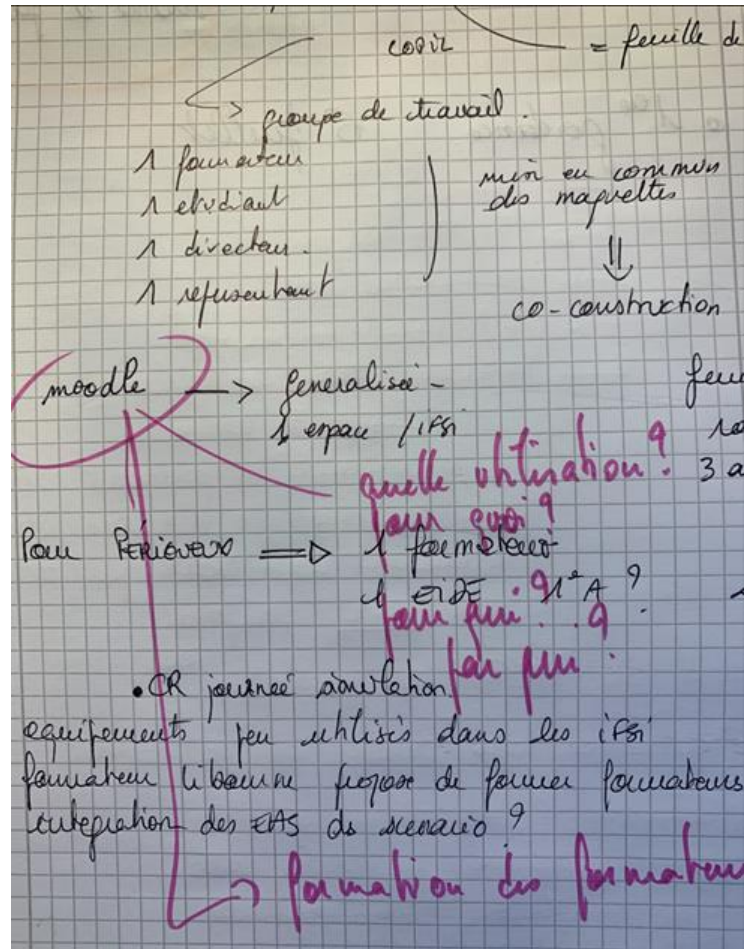 COPIL = feuille de
> groupe de travail.
1 formateur
1 etudiant
1 directeur.
1 representant
mise en commun
des maquettes
co-construction
moodle -> generalisée -
1 espace / IFSI
quelle utilisation ? 3 a
pour quoi ?
Pour PERIGUEUX => 1 formateur
1 EIDE 1°A ?
pour qui ?
par qui ?
• CR journée simulation
equipements peu utilisés dans les ifsi
formateur libourne propose de former formateurs
integration des EAS ds scenario ?
formation des formateurs